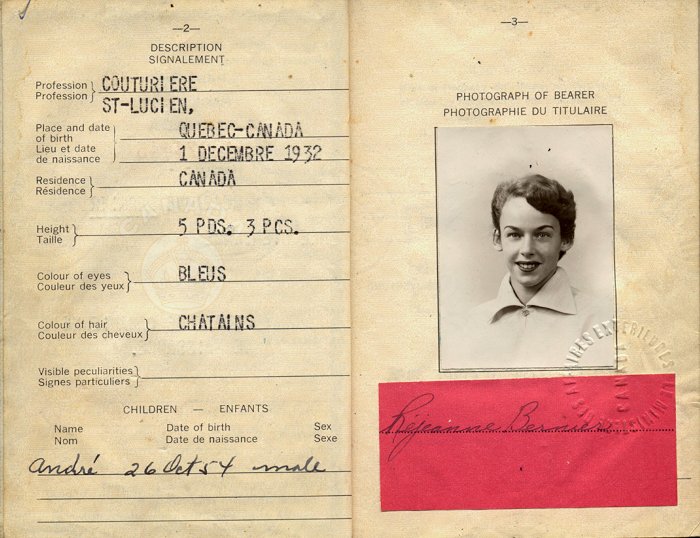 —2—
DESCRIPTION
SIGNALEMENT
Profession
Profession
COUTURIERE
ST-LUCIEN,
Place and date
of birth
Lieu et date
de naissance
QUEBEC-CANADA
1 DECEMBRE 1932
Residence
Résidence
CANADA
Height
Taille
5 PDS. 3 PCS.
Colour of eyes
Couleur des yeux
BLEUS
Colour of hair
Couleur des cheveux
CHATAINS
Visible peculiarities
Signes particuliers
CHILDREN — ENFANTS
Name Date of birth Sex
Nom Date de naissance Sexe
André 26 Oct 54 male
—3—
PHOTOGRAPH OF BEARER
PHOTOGRAPHIE DU TITULAIRE
CANADA
Réjeanne Bernier